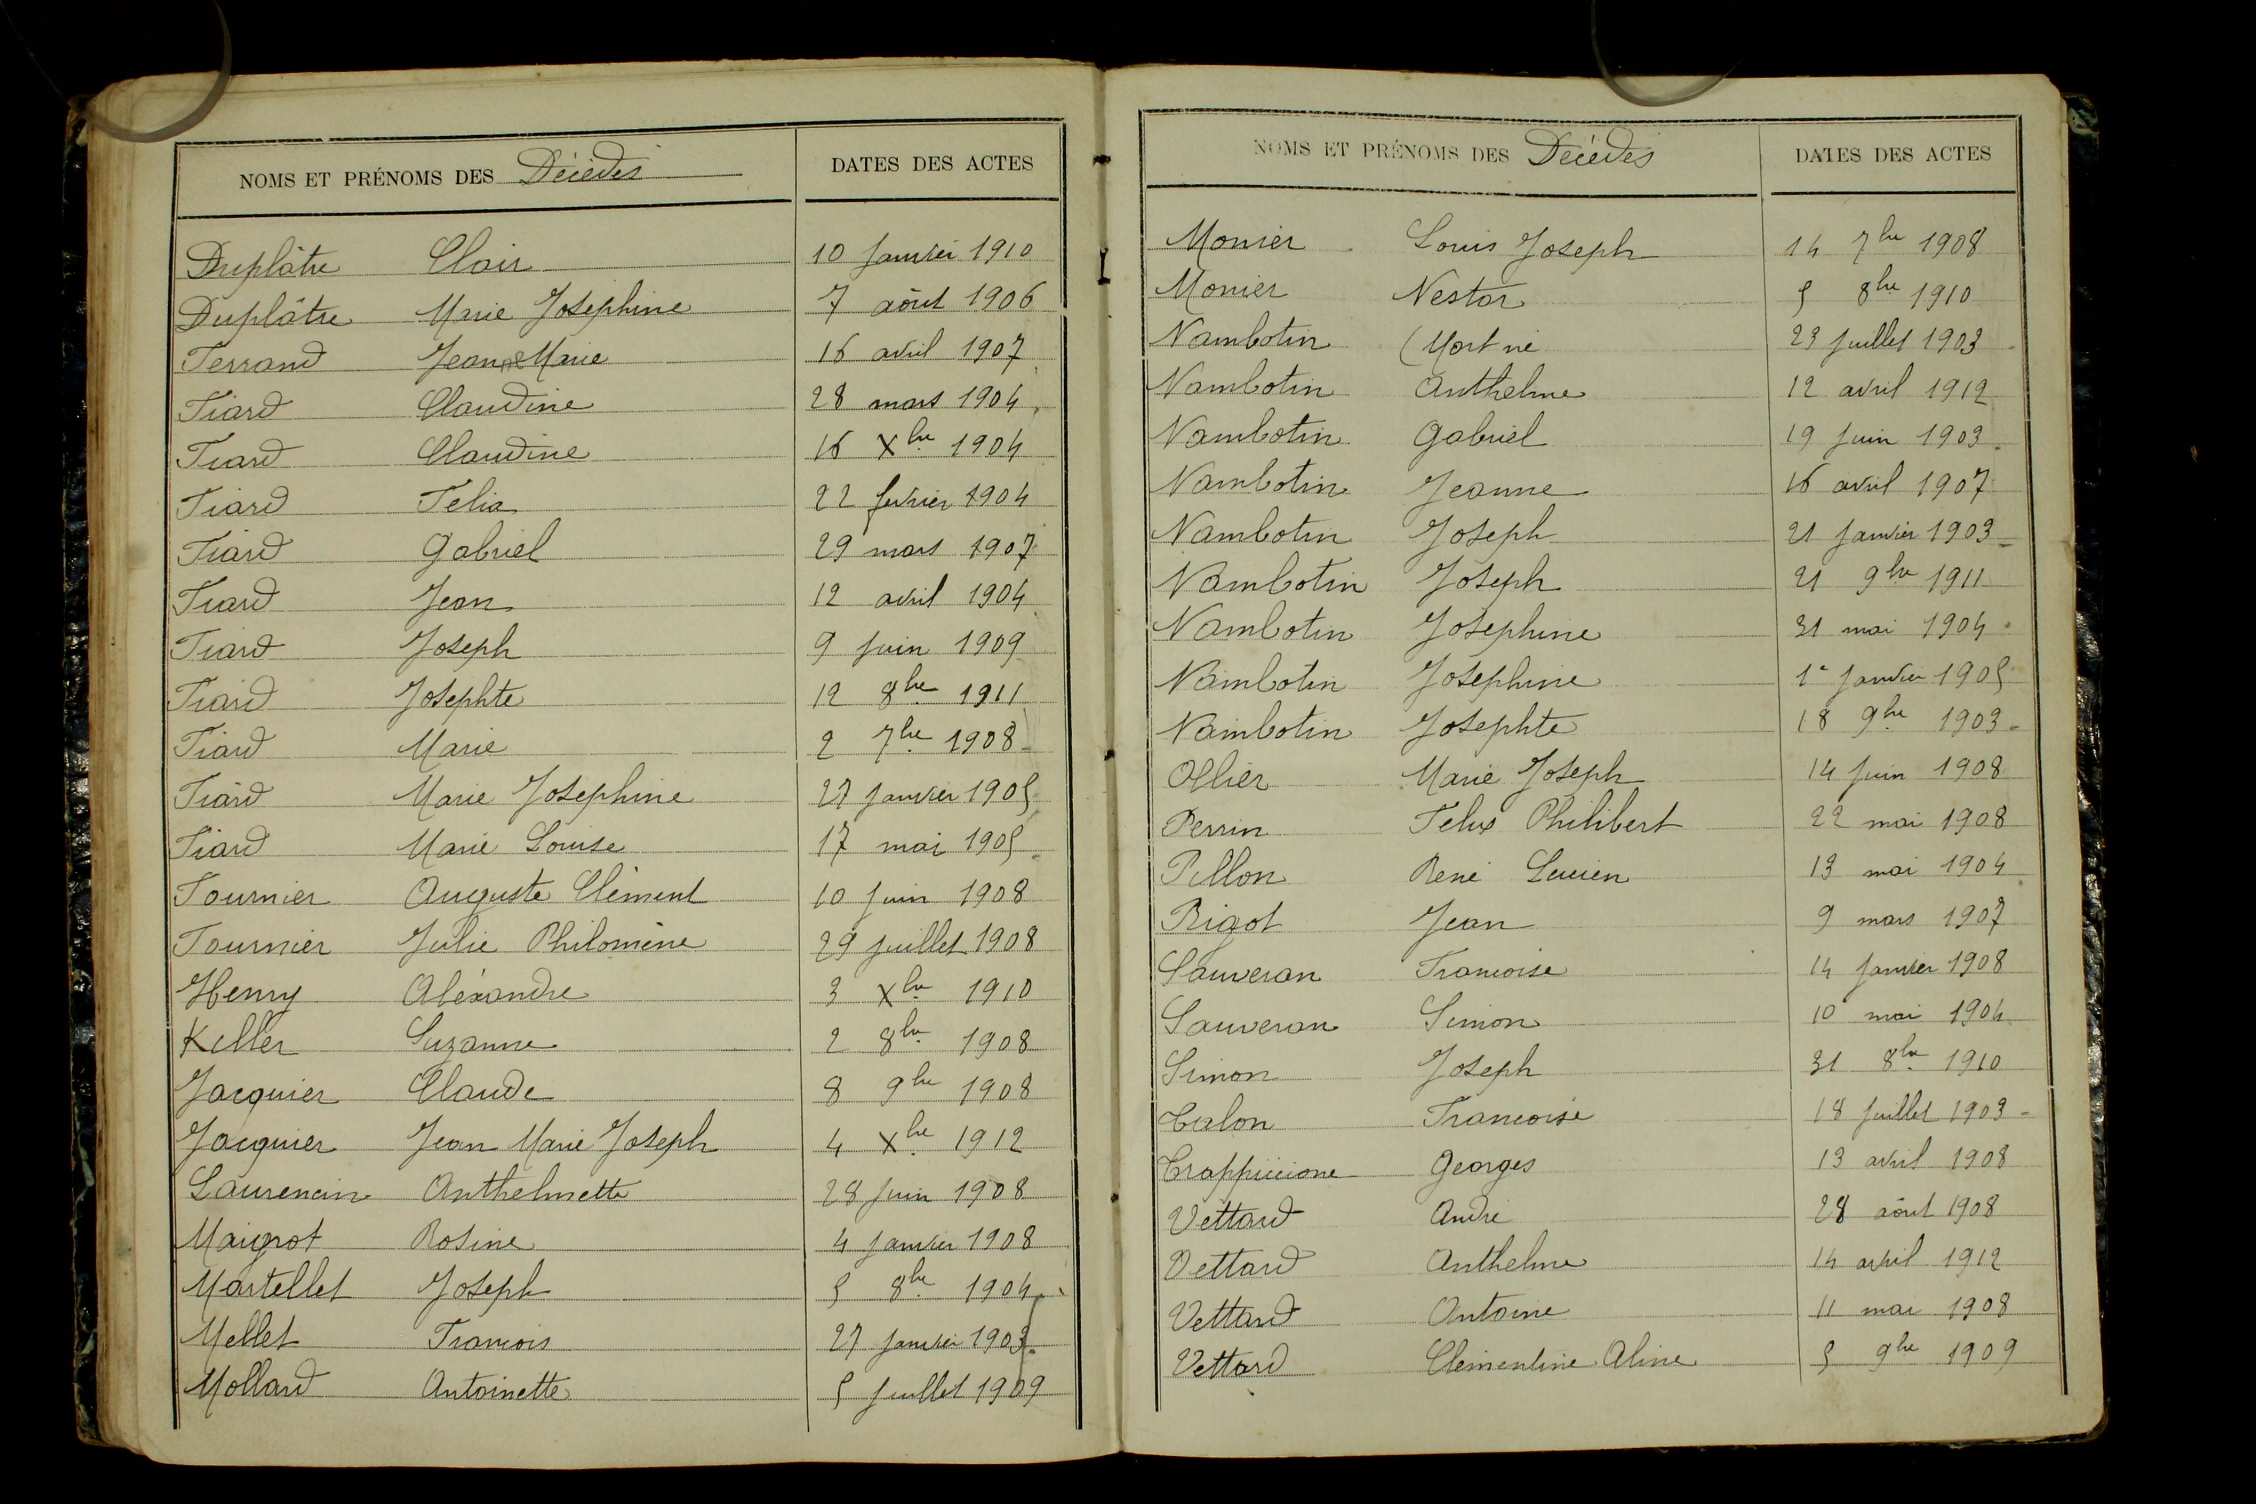 NOMS ET PRÉNOMS DES Décédés DATES DES ACTES
Duplâtre Clair 10 Janvier 1910
Duplâtre Marie Joséphine 7 août 1906
Ferrand Jeanne Marie 16 avril 1907
Fiard Claudine 28 mars 1904
Fiard Claudine 16 Xbre 1904
Fiard Felix 22 fevrier 1904
Fiard Gabriel 29 mars 1907
Fiard Jean 12 avril 1904
Fiard Joseph 9 Juin 1909
Fiard Josephte 12 8bre 1911
Fiard Marie 2 7bre 1908
Fiard Marie Joséphine 27 Janvier 1905
Fiard Marie Louise 17 mai 1905
Fournier Auguste Clément 10 Juin 1908
Fournier Julie Philomène 29 Juillet 1908
Henry Aléxandre 3 Xbre 1910
Keller Suzanne 2 8bre 1908
Jacquier Claude 8 9bre 1908
Jacquier Jean Marie Joseph 4 Xbre 1912
Laurencin Anthelmette 28 Juin 1908
Maigrot Rosine 4 Janvier 1908
Martellet Joseph 5 8bre 1904
Mellet Francois 27 Janvier 1903
Mollard Antoinette 5 Juillet 1909
NOMS ET PRÉNOMS DES Décédés DATES DES ACTES
Monier Louis Joseph 14 7bre 1908
Monier Nestor 5 8bre 1910
Nambotin (Mort né 23 Juillet 1903
Nambotin Anthelme 12 avril 1912
Nambotin Gabriel 19 Juin 1903
Nambotin Jeanne 16 avril 1907
Nambotin Joseph 21 Janvier 1903
Nambotin Joseph 21 9bre 1911
Nambotin Josephine 31 mai 1904
Nambotin Joséphine 1er Janvier 1905
Nambotin Josephte 18 9bre 1903
Ollier Marie Joseph 14 Juin 1908
Perrin Felix Philibert 22 mai 1908
Pillon René Lucien 13 mai 1904
Rigot Jean 9 mars 1907
Sauveran Francoise 14 Janvier 1908
Sauveran Simon 10 mai 1904
Simon Joseph 31 8bre 1910
Talon Francoise 18 Juillet 1903
Trappiccione Georges 13 avril 1908
Vettard André 28 août 1908
Vettard Anthelme 14 avril 1912
Vettard Antoine 11 mai 1908
Vettard Clémentine Aline 5 9bre 1909